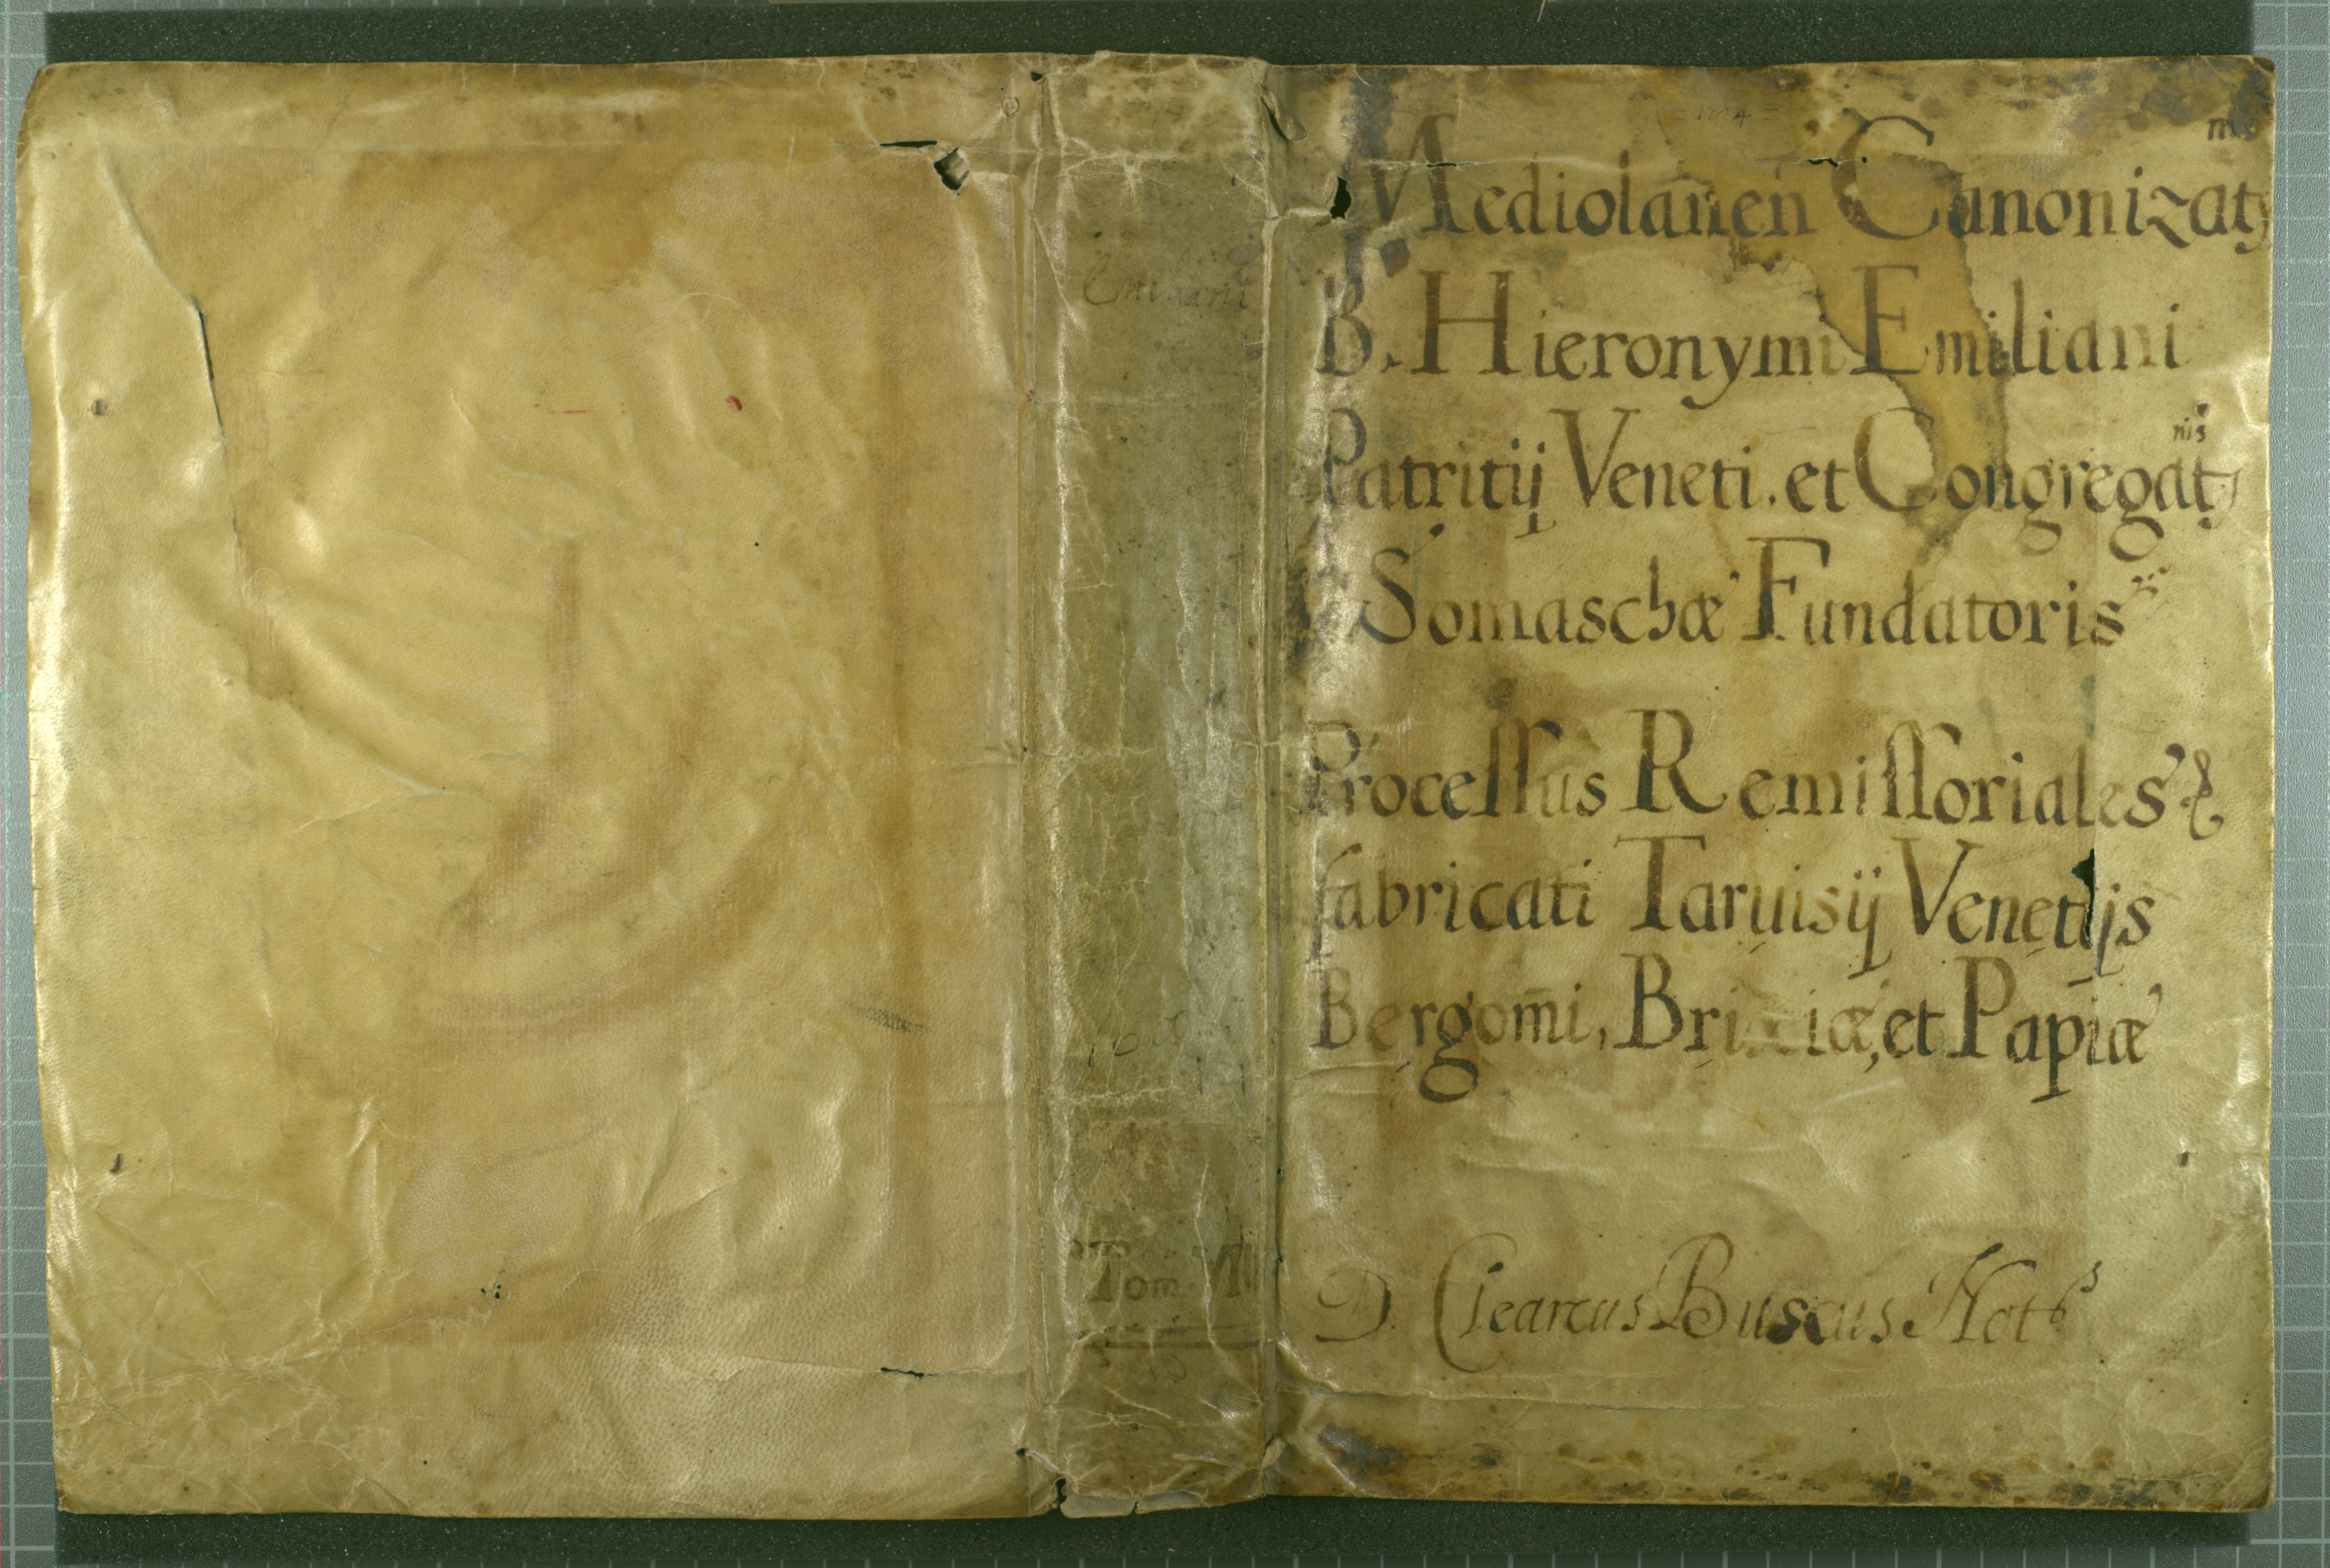 Emiliani
Tom. VII
Mediolanen̄ Canonizat
B. Hieronymi Emiliani
Patritij Veneti. et Congregat nis
Somaschæ Fundatoris
Processus Remissoriales
fabricati Taruisij Venetijs
Bergomi, Brixiæ, et Papiæ
D. Clearcus Buscus Not s